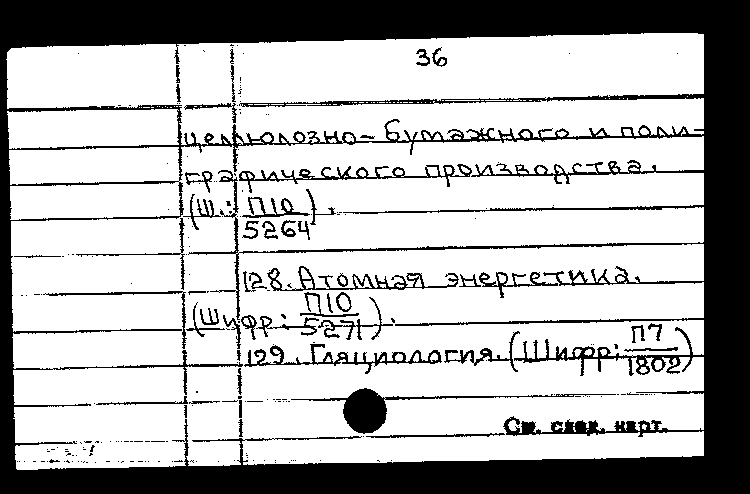 36
целлюлозно-бумажного и поли-
графического производства.
(Ш.: П10/5264).
128. Атомная энергетика.
(Шифр: П10/5271).
129. Гляциология. (Шифр: П7/1802)
См. след. карт.